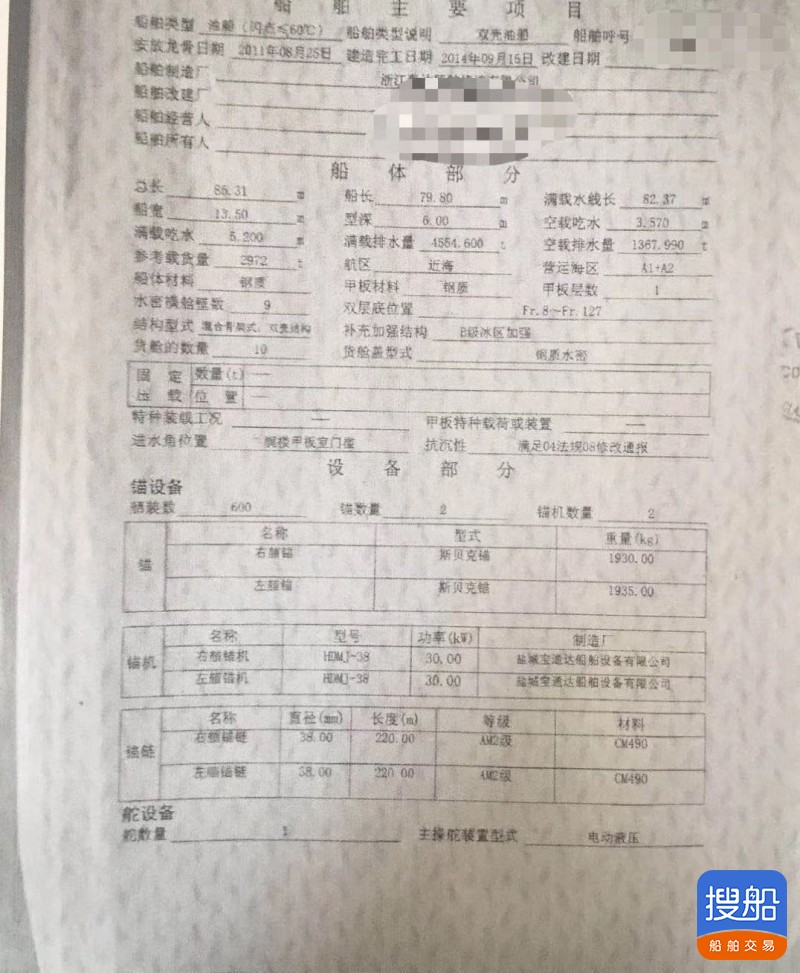 船舶主要项目
船舶类型 油船（闪点≤60℃） 船舶类型说明 双壳油船 船舶呼号
安放龙骨日期 2011年08月25日 建造完工日期 2014年09月15日 改建日期
船舶制造厂 浙江 有限公司
船舶改建厂
船舶经营人
船舶所有人
船体部分
总长 85.31 m 船长 79.80 m 满载水线长 82.37 m
船宽 13.50 m 型深 6.00 m 空载吃水 3.570 m
满载吃水 5.200 m 满载排水量 4554.600 t 空载排水量 1367.990 t
参考载货量 2972 t 航区 近海 营运海区 A1+A2
船体材料 钢质 甲板材料 钢质 甲板层数 1
水密横舱壁数 9 双层底位置 Fr.8~Fr.127
结构型式 混合骨架式，双壳结构 补充加强结构 B级冰区加强
货舱的数量 10 货舱盖型式 钢质水密
固定 数量(t) —
压载 位置 —
特种装载工况 — 甲板特种载荷或装置 —
进水角位置 艉楼甲板室门槛 抗沉性 满足04法规08修改通报
设备部分
锚设备
舾装数 600 锚数量 2 锚机数量 2
名称 型式 重量(kg)
锚 右艏锚 斯贝克锚 1930.00
左艏锚 斯贝克锚 1935.00
名称 型号 功率(kW) 制造厂
锚机 右艏锚机 HDMJ-38 30.00 盐城宝通达船舶设备有限公司
左艏锚机 HDMJ-38 30.00 盐城宝通达船舶设备有限公司
名称 直径(mm) 长度(m) 等级 材料
锚链 右艏锚链 38.00 220.00 AM2级 CM490
左艏锚链 38.00 220.00 AM2级 CM490
舵设备
舵数量 1 主操舵装置型式 电动液压
搜船
船舶交易